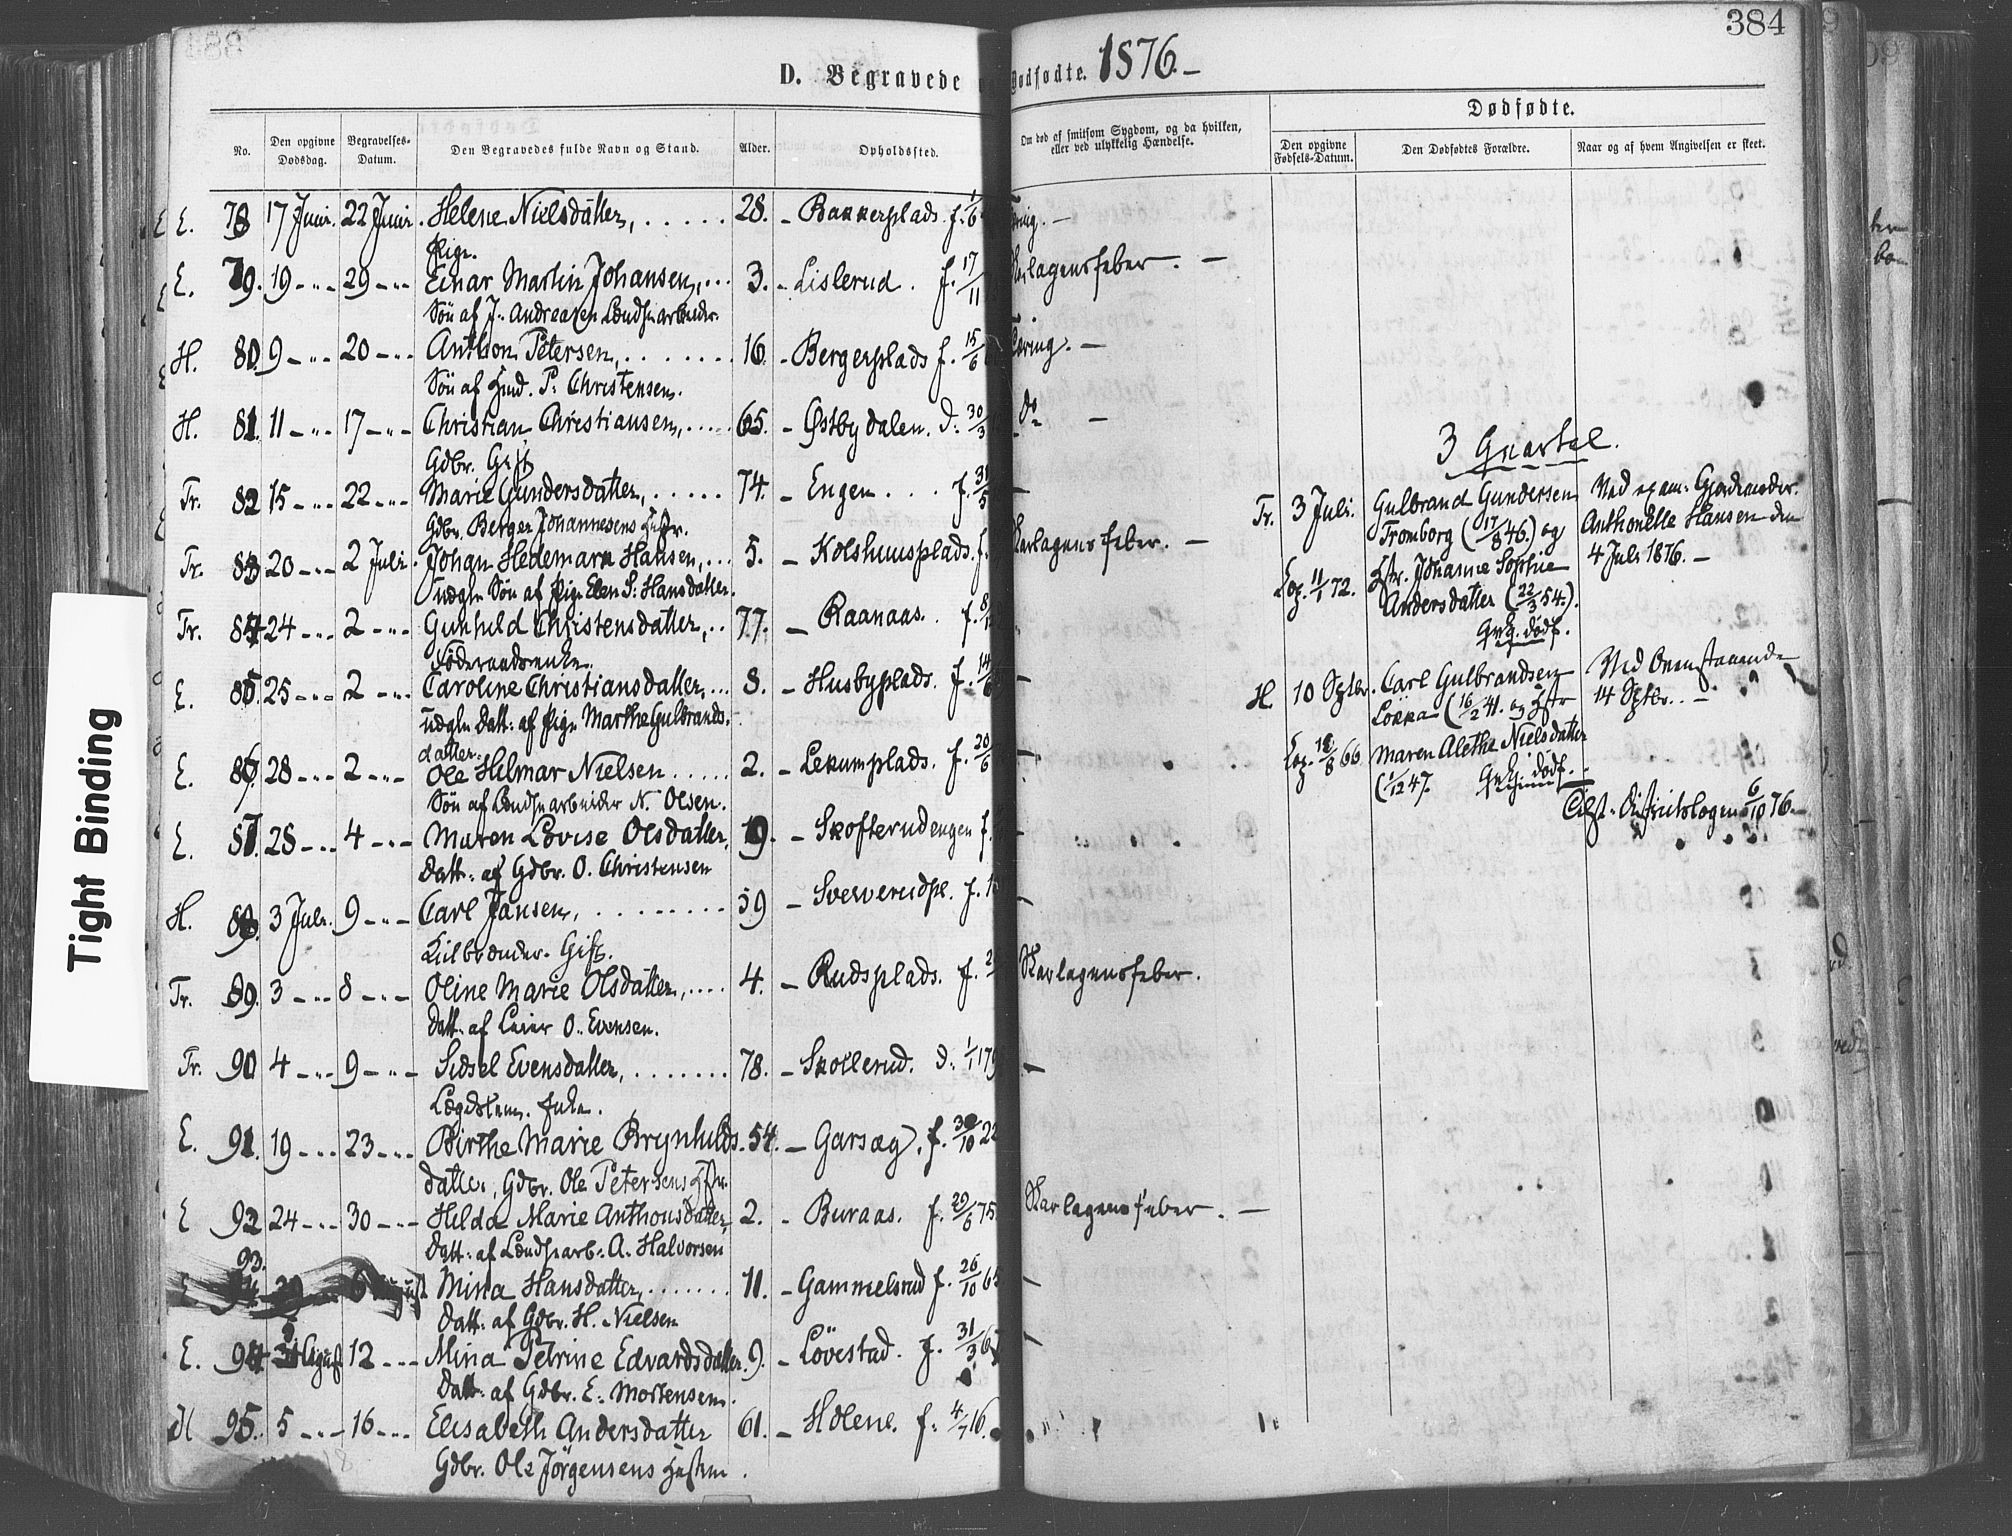 384
D. Begravede
Dødfødte. 1876.
No.
Den opgivne Dødsdag.
Begravelses-Datum.
Den Begravedes fulde Navn og Stand.
Alder.
Opholdssted.
Om død af smitsom Sygdom, og da hvilken, eller ved ulykkelig Hændelse.
Dødfødte.
Den opgivne Fødsels-Datum.
Den Dødfødtes Forældre.
Naar og af hvem Angivelsen er skeet.
E. 78 17 Juni. 22 Juni. Helene Nielsdatter, 28. Bakkerplads. f. 1/6
Pige.
E. 79. 19 29 Einar Martin Johansen, 3. Lislerud. f. 17/11 Skarlagensfeber.
Søn af J. Andreasen
H. 80. 9 20 Anthon Petersen, 16. Bergerplads f. 15/6 Tæring.
Søn af Hmd. P. Christensen.
H. 81. 11 17 Christian Christiansen, 65. Østbydalen. d. 30/3 do
Gdbr. Gift
Tr. 82 15 22 Marie Gundersdatter, 74. Engen. f. 31/5
Gdbr. Berger Johannesens Hustr.
Tr. 83 20 2 Juli. Johan Hedemark Hansen, 5. Kolshuusplads. f. Skarlagensfeber.
uægte Søn af Pige Elen S. Hansdatter.
Tr. 84 24 2 Gunhild Christensdatter, 77. Raanaas. f.
Føderaadsenke.
E. 85 25 2 Caroline Christiansdatter, 8. Husbyplads. f. 14
uægte Datt. af Pige Marthe Gulbrands-
datter.
E. 86. 28 2 Ole Hilmar Nielsen 2. Lekumplads. f. 20/6
Søn af N. Olsen.
E. 87. 28 4 Maren Lovise Olsdatter, 19. Skofterudengen f.
Datt. af Gdbr. O. Christensen
H. 88. 3 Juli. 9 Carl Jansen, 59 Sververudpl. f.
Gift.
Tr. 89. 3 8 Oline Marie Olsdatter, 4. Rudsplads. f. Skarlagensfeber.
Datt. af Leier O. Evensen.
Tr. 90 4 9 Sidsel Evensdatter, 78. Skollerud. d. 1/1 179
Lægdslem. Enke.
E. 91. 19 23 Birthe Marie Brynhilds- 54. Garsæg, f. 30/10 22
datter, Gdbr. Ole Petersens Hstr.
E 92 24 30 Hilda Marie Anthonsdatter, 2. Buraas. f. 29/6 75 Skarlagensfeber.
Datt. af A. Halvorsen
93.
E 6 August Mina Hansdatter, 11. Gammelsrud f. 26/10 65
Datt. af Gdbr. H. Nielsen
E. 94 August 12 Mina Petrine Edvardsdatter 9. Løvestad. f. 31/3 67
Datt. af Gdbr. E. Mortensen.
H 95. 5 16 Elisabeth Andersdatter 61. Holene. f. 4/7 16.
Gdbr. Ole Jörgensens Hustru.
3 Quartal.
Tr. 3 Juli. Gulbrand Gundersen Ved exam. Gjordemoder.
Tromborg (17/8 46.) og Anthonette Hansen den
Hstr. Johanne Sophie 4 Juli 1876.
Cop. 11/1 72. Andersdatter (22/3 54.).
dødf.
H. 10 Sptbr. Carl Gulbrandsen Ved Ovenstaaende
Løkka (16/2 41. og Hstr 14 Sptbr.
Cop. 18/8 66 Maren Alethe Nielsdatter
(1/12 47. dødf.
Districtslægen 6/10 76.
Tight Binding